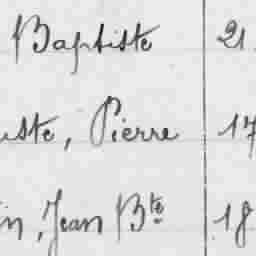 Baptiste 21
uste, Pierre 17
in, Jean Bte 18